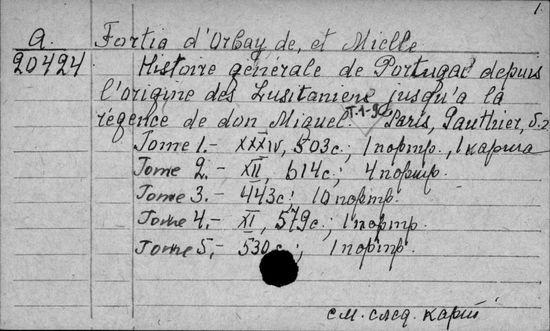 1.
A. Fortia d'Orbay de, et Mielle
20424 Histoire générale de Portugal depuis
l'origine des Lusitaniens jusqu'a la
régence de don Miquel. T.1-9 Paris, Gauthier, S.a
Tome 1.- XXXIV, 503с.; 1 портр., 1 карта
Tome 2.- XII, 614с.; 4 портр.
Tome 3.- 443с.; 10 портр.
Tome 4.- XI, 579с.; 1 портр.
Tome 5.- 530с.; 1 портр.
см. след. карт